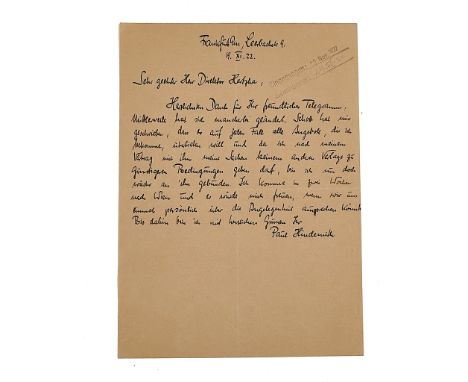 Frankfurt/M,
9. XI. 22.
Eingegangen:
Sehr geehrter Herr Direktor Hertzka,
Herzlichen Dank für Ihr freundliches Telegramm.
Mittlerweile hat sich mancherlei geändert. Schott hat mir
geschrieben, dass er auf jeden Fall alle Angebote, die ich
bekomme, überbieten will und da ich nach meinem
Vertrag mit ihm meine Sachen keinem andern Verlage zu
günstigeren Bedingungen geben darf, bin ich nun doch
wieder an ihn gebunden. Ich komme in zwei Wochen
nach Wien und es würde mich freuen, wenn wir uns
einmal persönlich über die Angelegenheit aussprechen könnten.
Bis dahin bin ich mit herzlichen Grüssen Ihr
Paul Hindemith